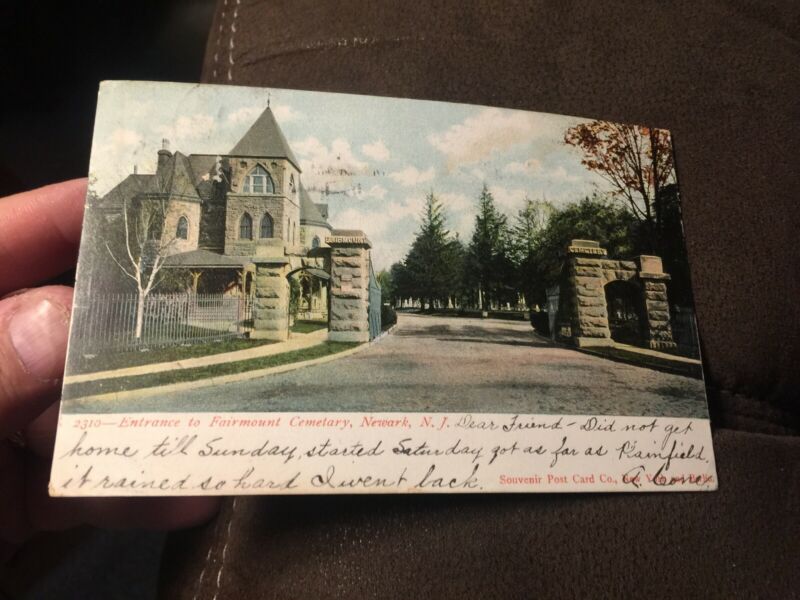 FAIRMOUNT
CEMETERY
2310—Entrance to Fairmount Cemetary, Newark, N. J. Dear Friend - Did not get
home till Sunday, started Saturday got as far as Plainfield,
it rained so hard I went back.
Souvenir Post Card Co., New York and Berlin.